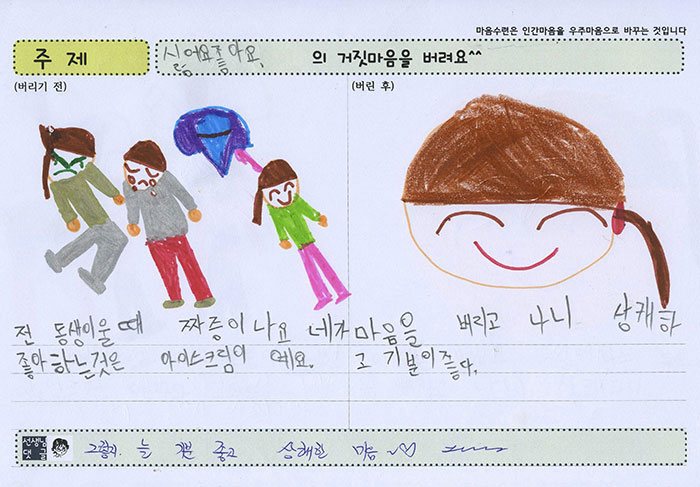 마음수련은 인간마음을 우주마음으로 바꾸는 것입니다
주제
싫어요좋아요, 의 거짓마음을 버려요^^
(버리기 전)
(버린 후)
전 동생이울 때 짜증이 나요 네가
좋아하는것은 아이스크림이 예요.
마음을 버리고 나니 상캐하
고 기분이좋다.
선생님
댓글
그렇지. 늘 좋고 상쾌한 마음~♡